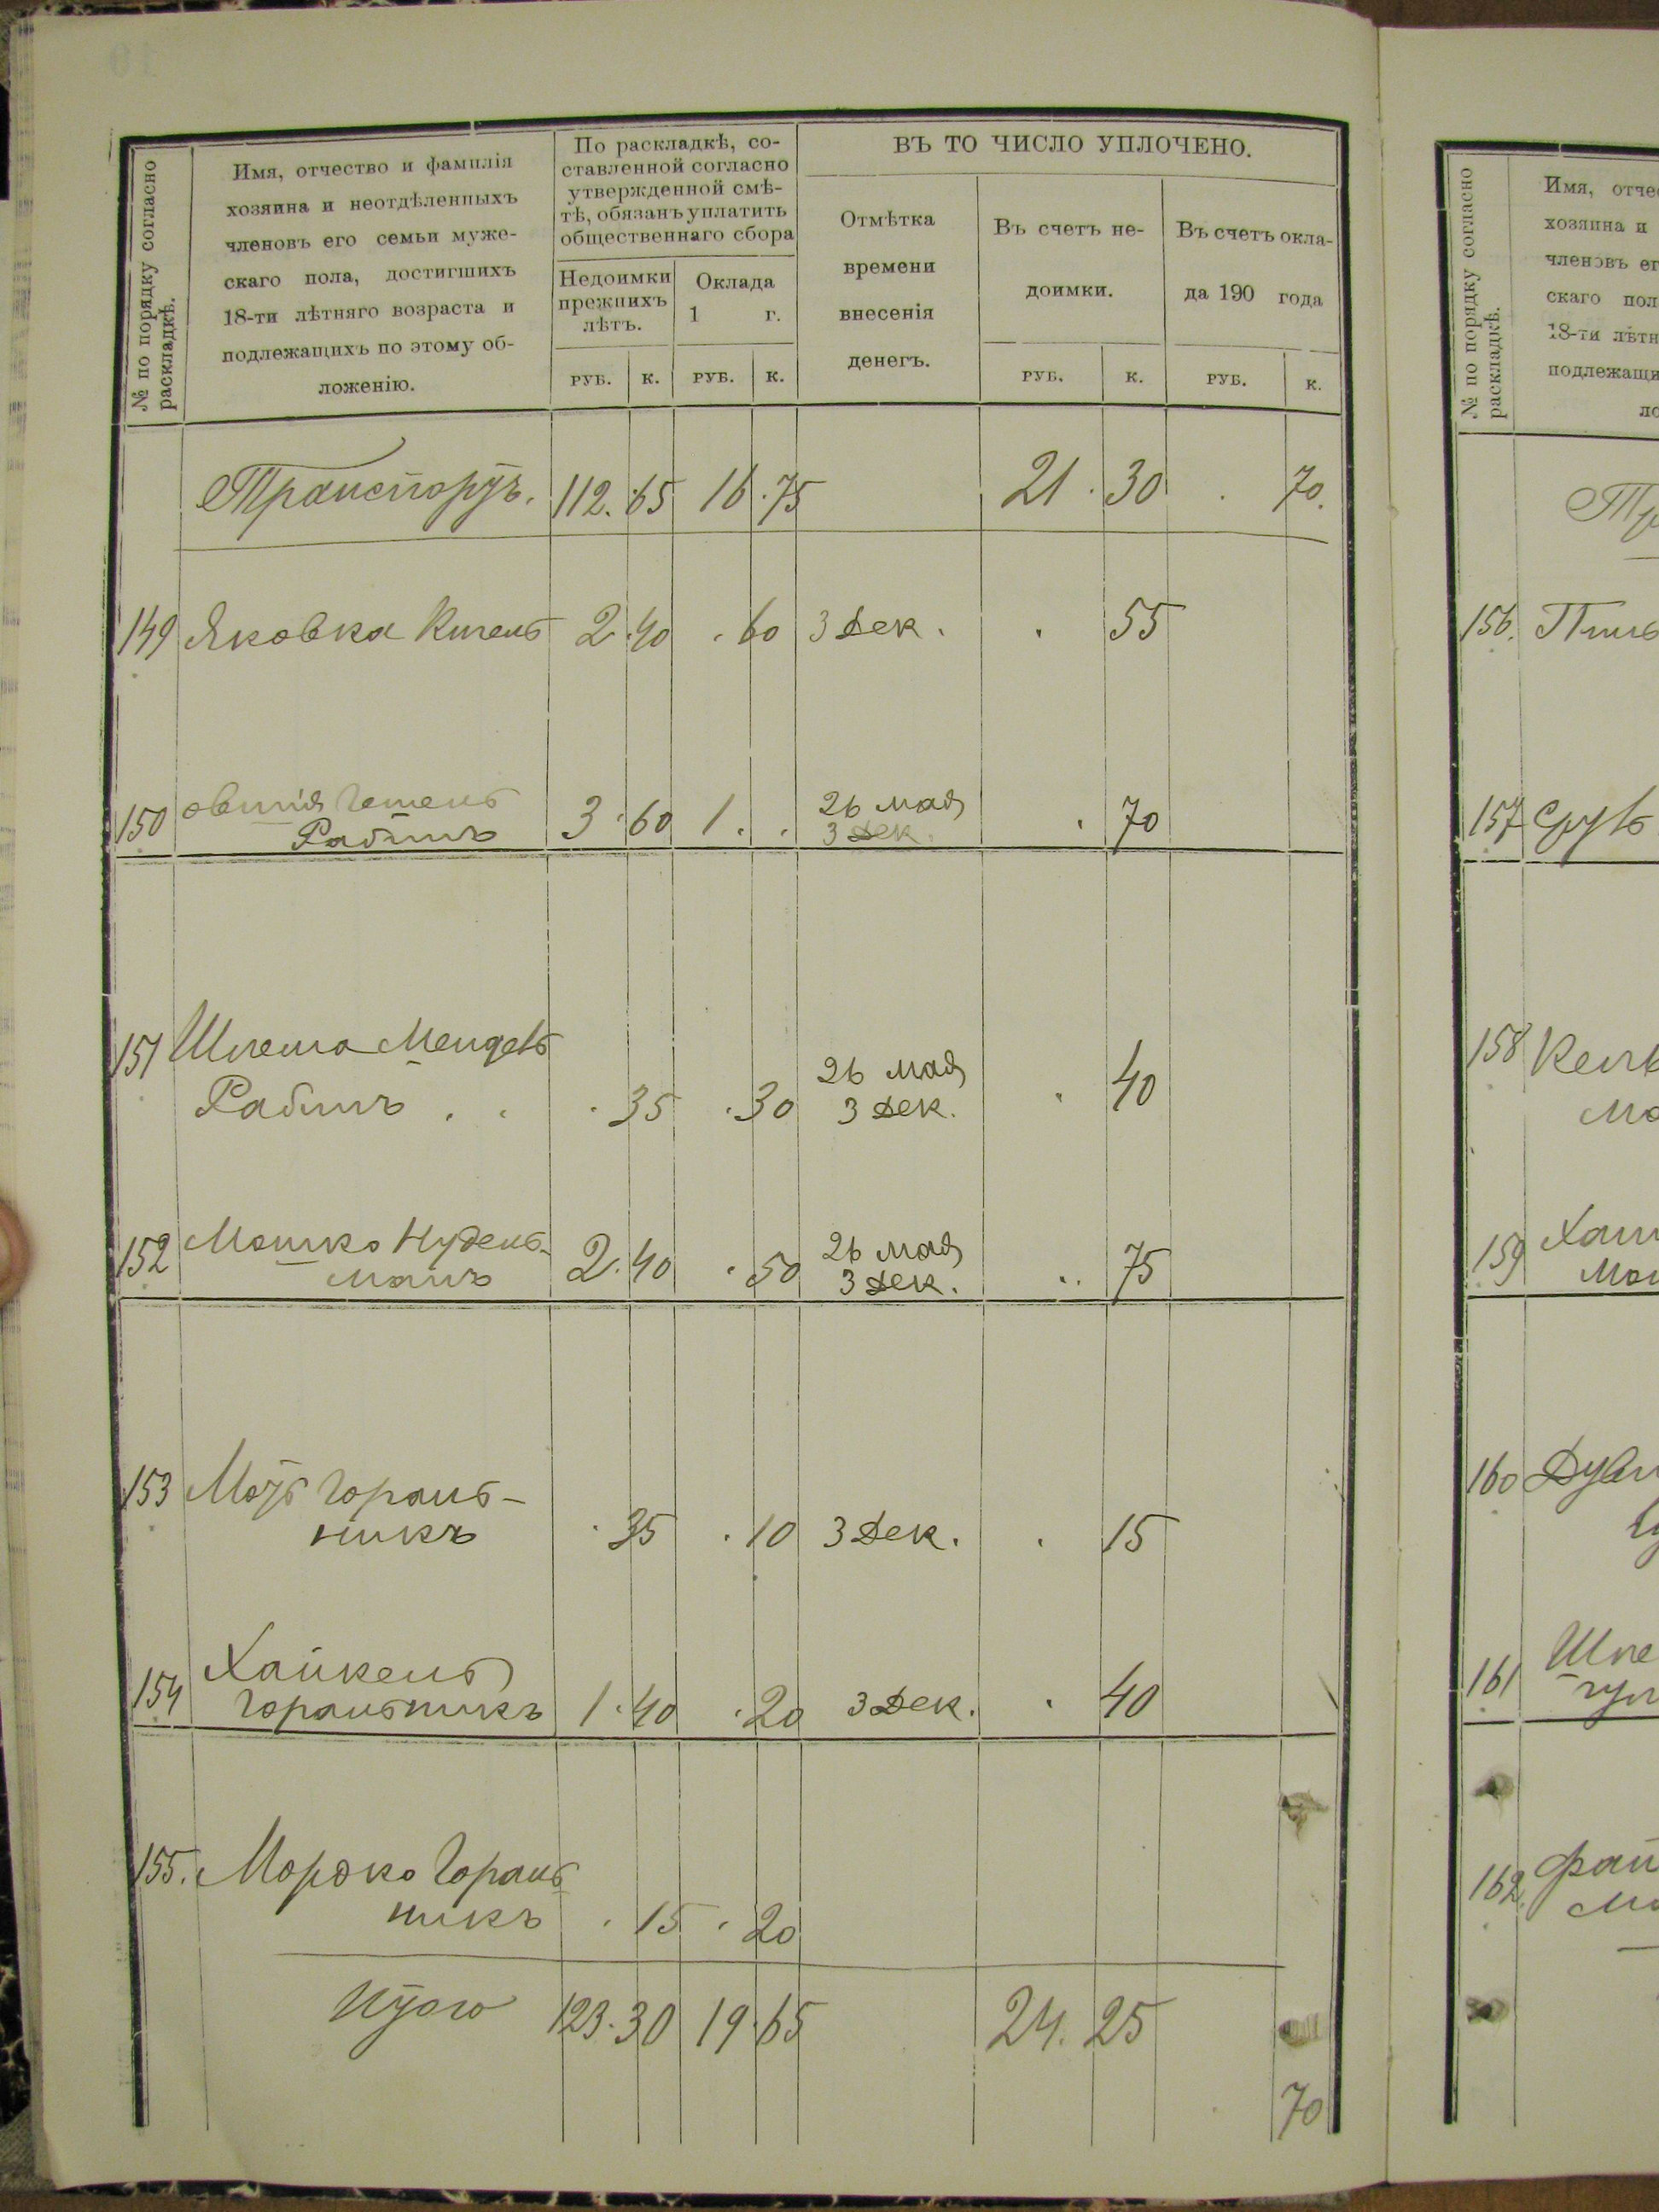 № по порядку согласно раскладкѣ.
Имя, отчество и фамилія
хозяина и неотдѣленныхъ
членовъ его семьи муже-
скаго пола, достигшихъ
18-ти лѣтняго возраста и
подлежащихъ по этому об-
ложенію.
По раскладкѣ, со-
ставленной согласно
утвержденной смѣ-
тѣ, обязанъ уплатить
общественнаго сбора
Недоимки
прежнихъ
лѣтъ.
Оклада
1 г.
ВЪ ТО ЧИСЛО УПЛОЧЕНО.
Отмѣтка
времени
внесенія
денегъ.
Въ счетъ не-
доимки.
Въ счетъ окла-
да 190 года
РУБ. К. РУБ. К. РУБ. К. РУБ. К.
Транспортъ. 112.65 16.75 21.30 . 70.
149 Яковка 2.40 .60 3 Дек. . 55
150 Овшія
Рабинъ 3.60 1. . 26 мая 3 Дек. . 70
151 Шлема Мендель
Рабинъ . . . 35 .30 26 мая 3 Дек. . 40
152 Мошко Нудель-
манъ 2.40 .50 26 мая 3 Дек. . 75
153 Моть Горань-
никъ . 35 .10 3 Дек. . 15
154 Хайкель
Гораньникъ 1.40 .20 3 Дек. . 40
155. Мордко Горань
никъ . 15 . 20
Итого 123.30 19.65 24.25
70
№ по порядку согласно раскладкѣ.
Имя, отче
хозяина и
членовъ ег
скаго пол
18-ти лѣтн
подлежащи
ло
Тр
156.
157 Сруль
158
Ма
159
160
161 Шле
162.